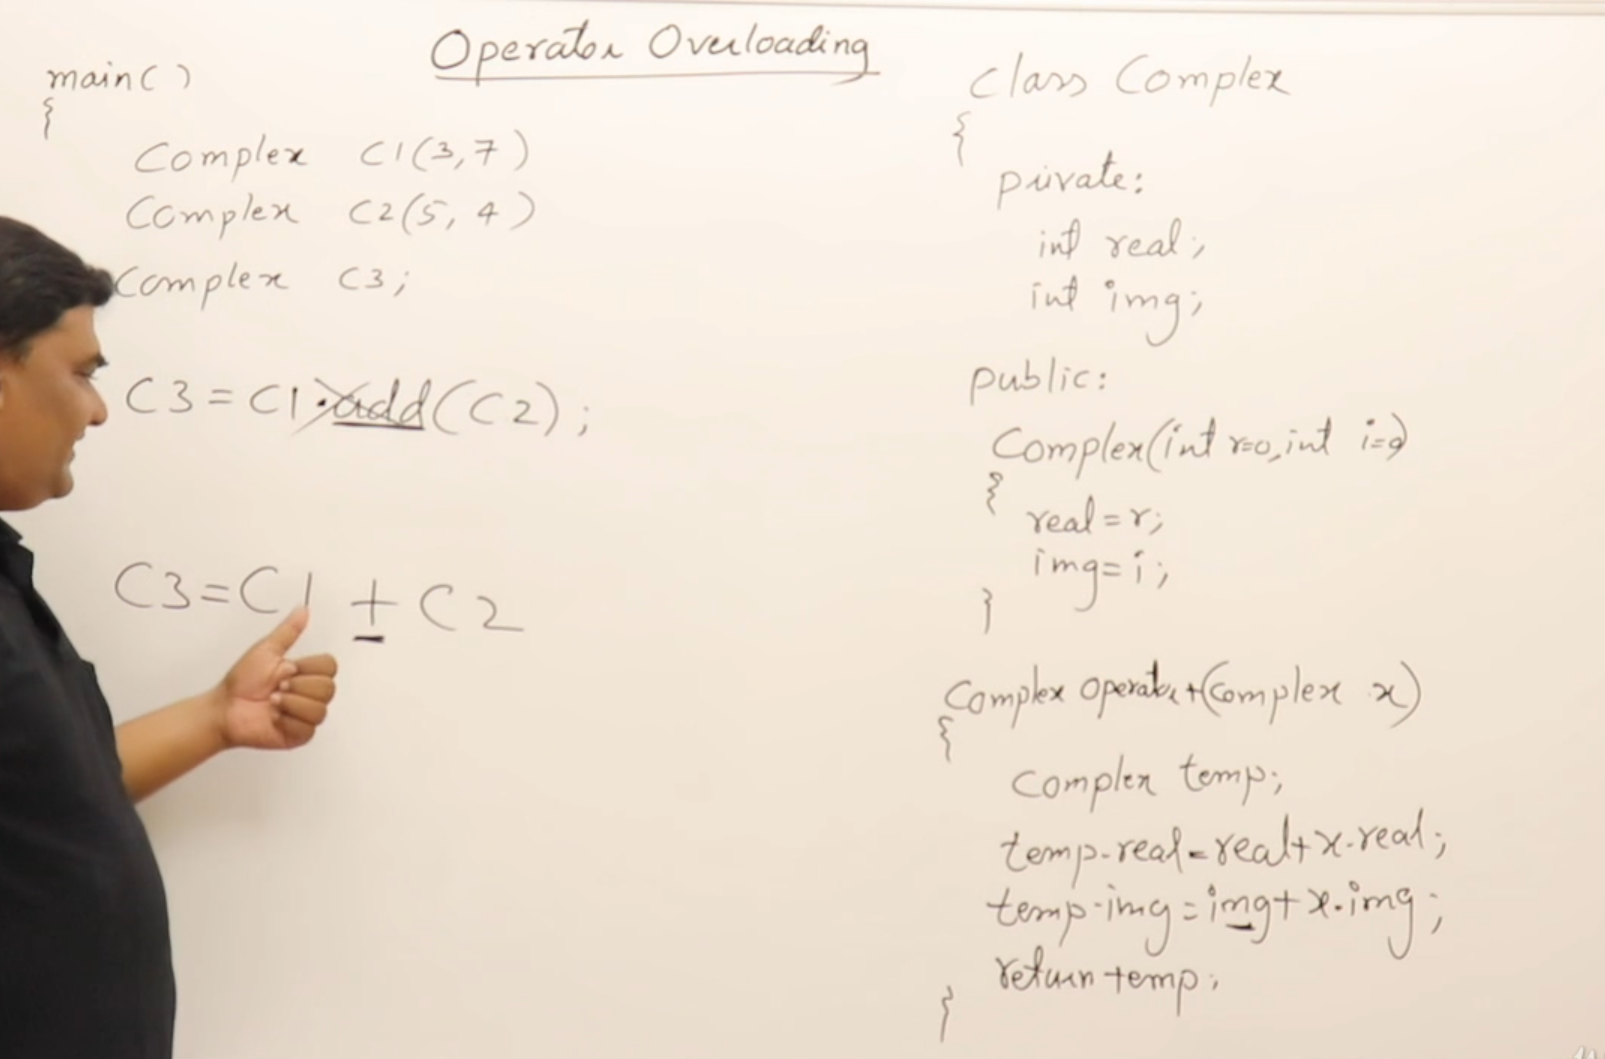 Operator Overloading
main()
{
Complex C1(3,7)
Complex C2(5,4)
Complex C3;
C3=C1.add(C2);
C3=C1 + C2
class Complex
{
private:
int real;
int img;
public:
Complex(int r=0,int i=0)
{
real=r;
img=i;
}
Complex operator+(Complex x)
{
Complex temp;
temp.real=real+x.real;
temp.img=img+x.img;
return temp;
}